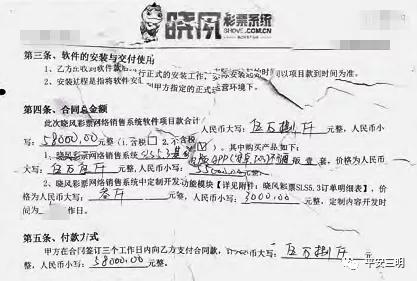 晓风彩票系统
WWW.SHOVE.COM
第三条、软件的安装与交付使用
1、乙方在收到软件款后 行正式的安装工作, 际安装起的时间以项目款到时间为准。
2、安装过程是指将软件安 到甲方指定的正式运营环境下。
第四条、合同总金额
此次晓风彩票网络销售系统软件项目款合计 人民币大写: 伍万捌仟 元整,人民币小
写: 58000.00 元整(1.含税 2.不含税 )。其中购买产品如下:
1、晓风彩票网络销售系统 SLS5.3 版APP 版 壹 套,价格为人民币
大写: 伍万伍仟 元整,人民币小写: 55000.00 元整。
2、晓风彩票网络销售系统中定制开发功能模块【详见附件:晓风彩票SLS5.3订单明细表】,价
格为人民币大写: 叁仟 元整,人民币小写: 3000.00 元整,定制内容开发时
间为 作日。
第五条、付款方式
甲方在合同签订三个工作日内向乙方支付合同款, 人民币大写: 伍万捌仟 元
整,人民币小写: 58000.00 元整。
平安三明